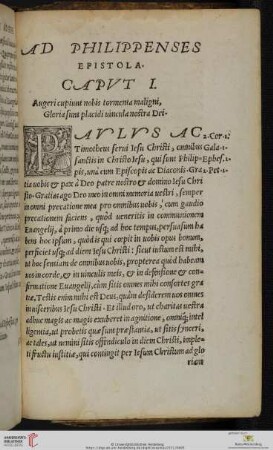 AD PHILIPPENSES
EPISTOLA.
CAPVT I.
Augeri cupiunt nobis tormenta maligni,
Gloria sunt placidi vincula nostra Dei.
PAVLVS AC 2. Cor. 1.
Timotheus serui Iesu Christi, omnibus Gala. 1.
sanctis in Christo Iesu, qui sunt Philip- Ephes. 1.
pis, unà cum Episcopis ac Diaconis. Gra- 1. Pet. 1.
tia uobis & pax à Deo patre nostro & domino Iesu Chri
sto. Gratias ago Deo meo in omni memoria uestri, semper
in omni precatione mea pro omnibus uobis, cum gaudio
precationem faciens, quòd ueneritis in communionem
Euangelij, à primo die usq; ad hoc tempus, persuasum ha
bens hoc ipsum, quòd is qui cœpit in uobis opus bonum,
perficiet usq; ad diem Iesu Christi: sicut iustum est mihi,
ut hoc sentiam de omnibus uobis, propterea quòd habeam
uos in corde, & in uinculis meis, & in defensione & con
firmatione Euangelij, cùm sitis omnes mihi consortes gra
tiæ. Testis enim mihi est Deus, quàm desiderem uos omnes
in uisceribus Iesu Christi. Et illud oro, ut charitas uestra
adhuc magis ac magis exuberet in agnitione, omniq; intel
ligentia, ut probetis quæ sunt præstantia, ut sitis synceri,
ac tales, ut nemini sitis offendiculo in diem Christi, imple
ti fructu iustitiæ, qui contingit per Iesum Christum ad glo
riam